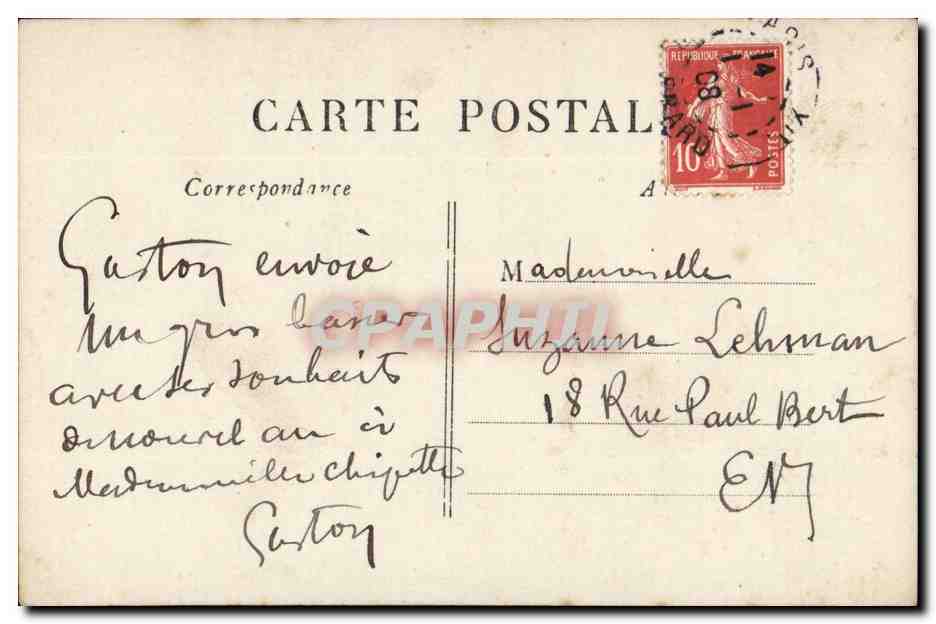 CARTE POSTALE
Correspondance
A
RÉPUBLIQUE FRANÇAISE
10
POSTES
PARIS XIV
14 - 1
08
Gaston envoie
un gros baiser
avec ses souhaits
de nouvel an à
Mademoiselle Chipette
Gaston
Mademoiselle
Suzanne Lehman
18 Rue Paul Bert
EV
CPAPHIL